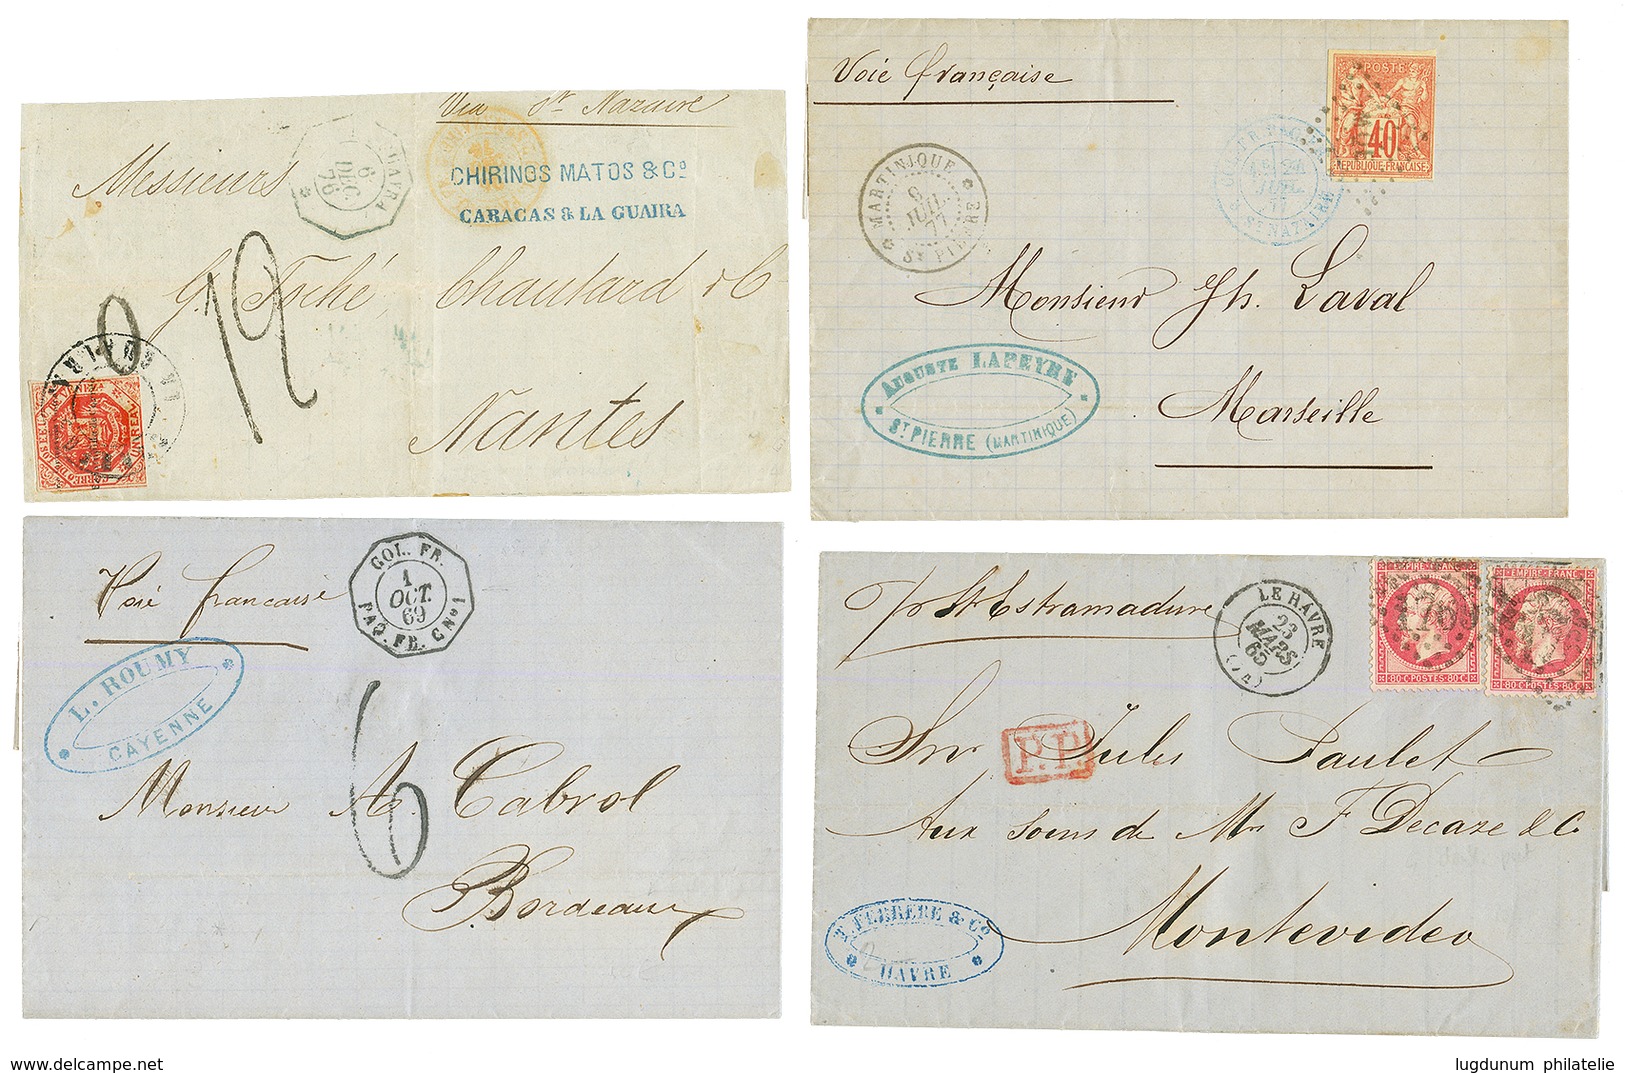 Via St Nazaire
Messieurs
LA GUAYRA
6
DEC.
76
CHIRINOS MATOS & Cº
CARACAS & LA GUAIRA
G. Toché, Chautard & Cie
12
Nantes
LA GUAIRA
Voie française
POSTE
40
REPUBLIQUE FRANÇAISE
MARTINIQUE
9
JUIL.
77
ST PIERRE
ST NAZAIRE
77
Monsieur Jh. Laval
Marseille
AUGUSTE LAPEYRE
ST PIERRE (MARTINIQUE)
Voie française
COL. FR.
1
OCT.
69
PAQ. FR. C Nº 1
L. ROUMY
CAYENNE
6
Monsieur A. Cabrol
Bordeaux
p St Estramadure
LE HAVRE
23
MARS
65
(74)
EMPIRE FRANC
80 C POSTES 80 C
EMPIRE FRANC
80 C POSTES 80 C
P.P.
Snr Jules Paulet
Aux soins de Mrs F Decaze & Co
Montevideo
T. FERRERE & Cº
HAVRE
www.delcampe.net
lugdunum philatelie